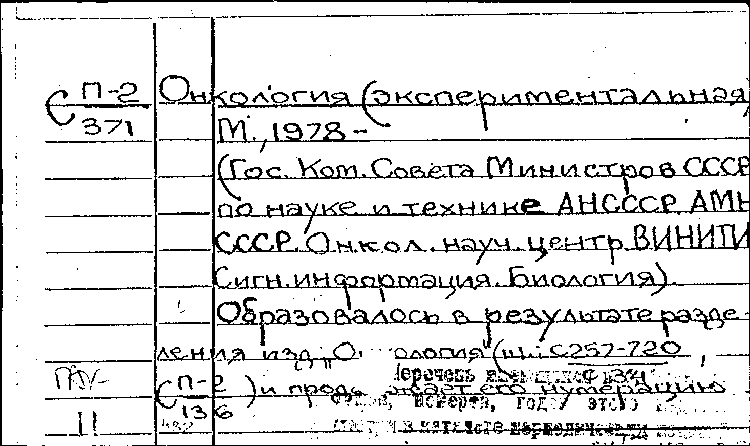 С П-2/371 Онкология (экспериментальная,
М., 1978 –
(Гос. Ком. Совета Министров СССР
по науке и технике АНСССР АМН
СССР. Онкол. науч. центр ВИНИТИ
Сигн. информация. Биология).
Образовалось в результате разде-
ления изд. „О ология" (ш.: С257-720,
С П-2/136) и прод жает его нумерацию
Перечень
номера, год этого
в каталоге периодических
II